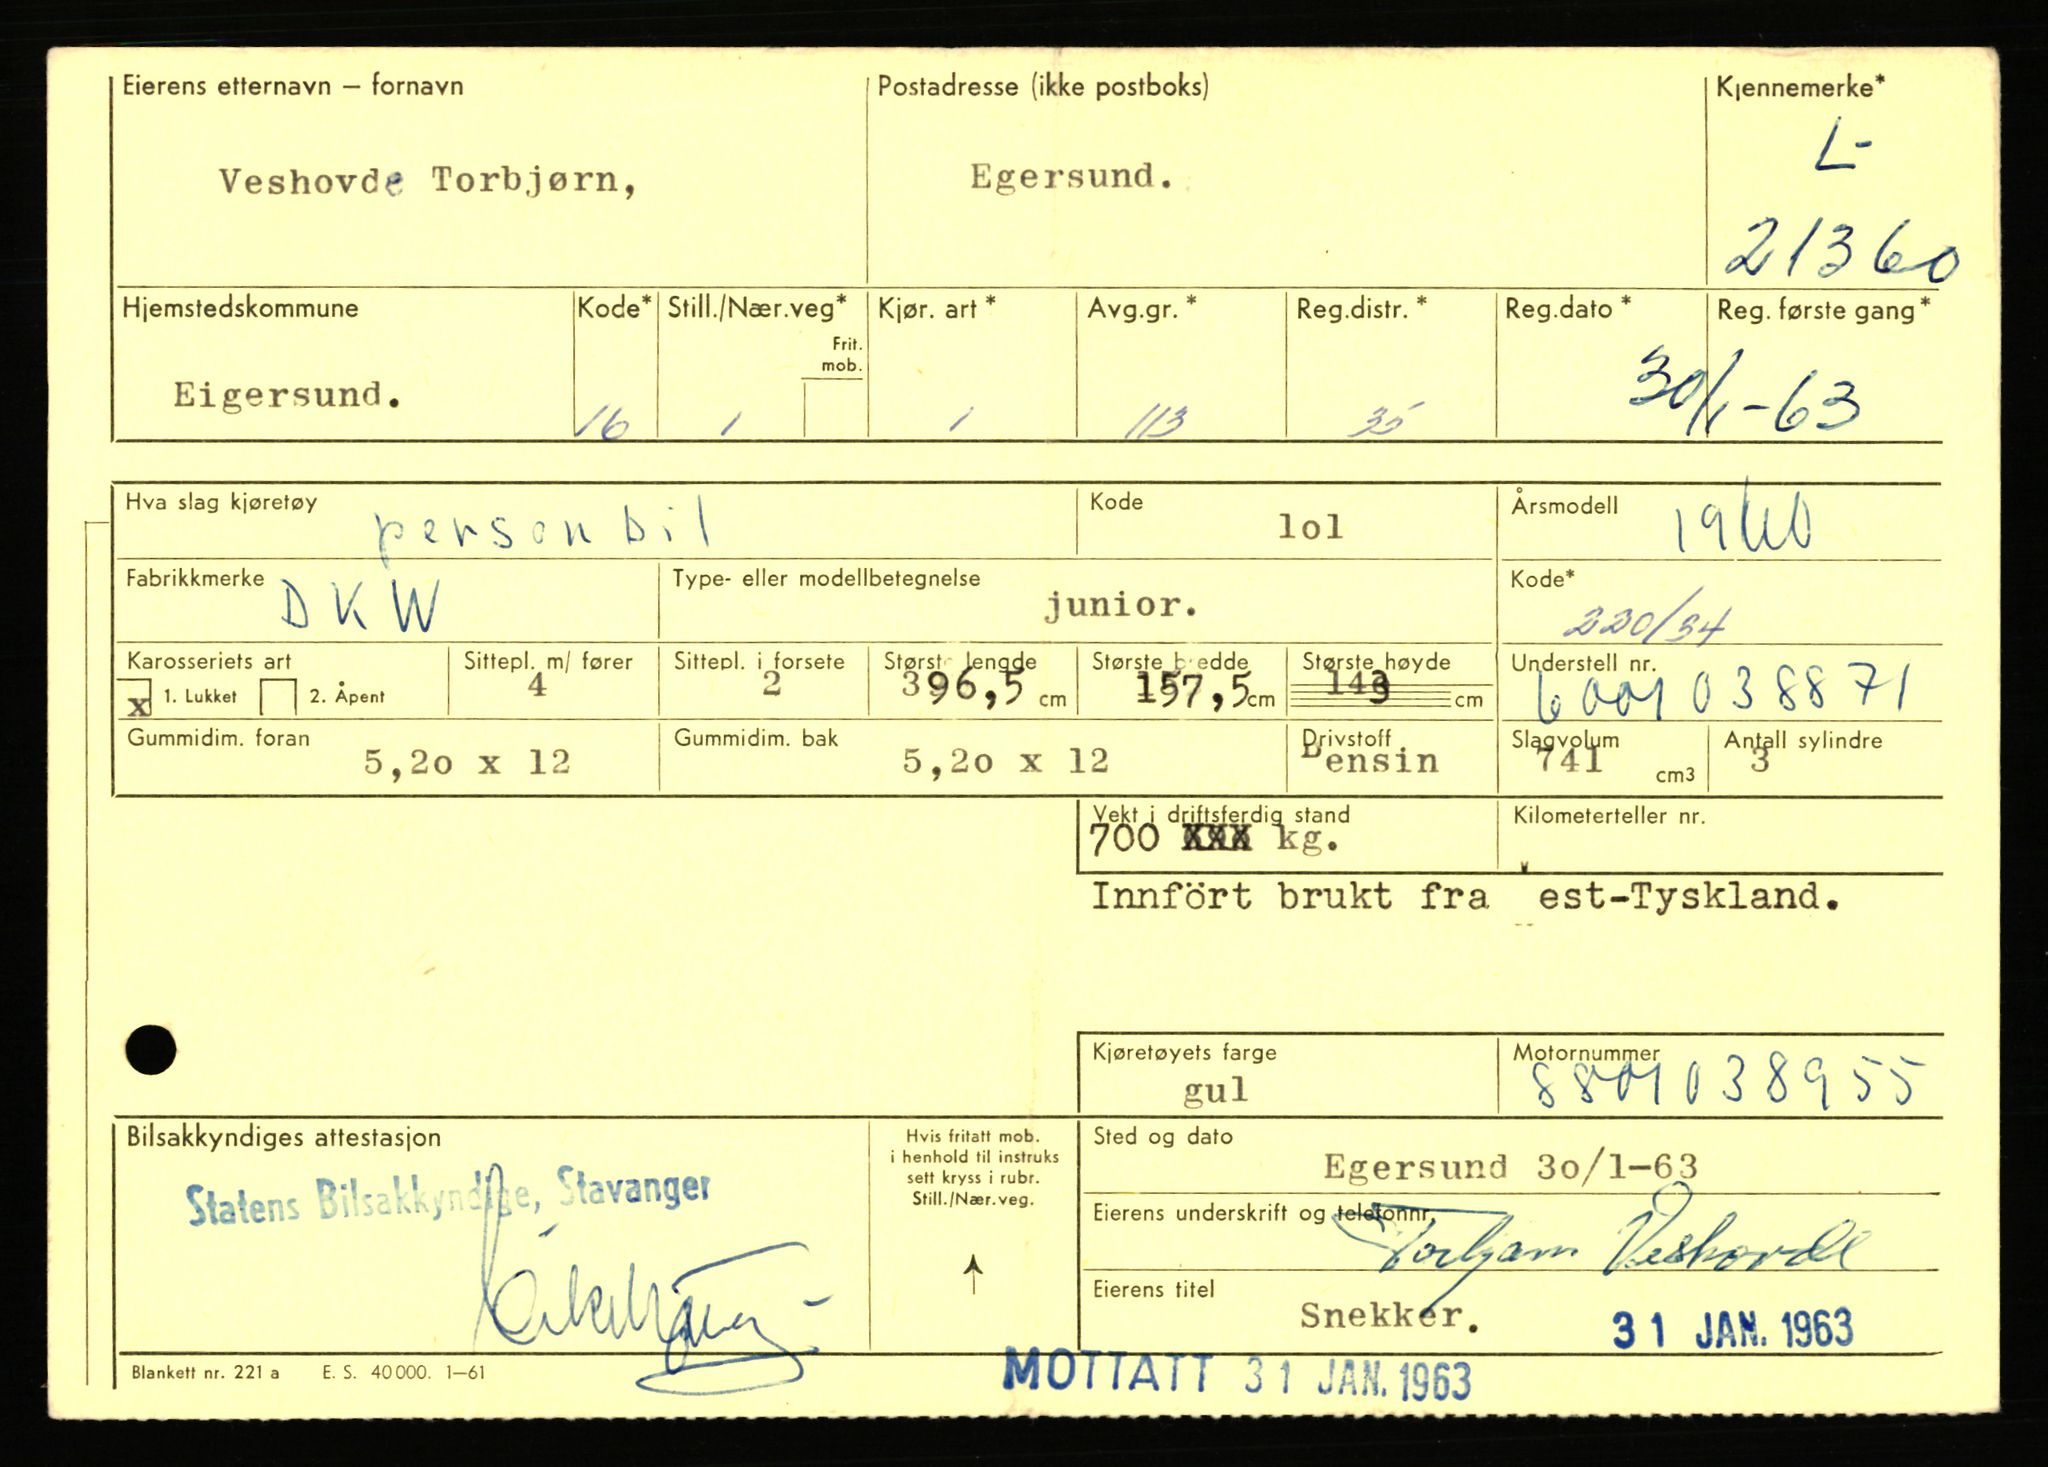 Eierens etternavn – fornavn Postadresse (ikke postboks) Kjennemerke*
Veshovde Torbjørn, Egersund. L-
21360
Hjemstedskommune Kode* Still./Nær.veg* Kjør. art * Avg.gr. * Reg.distr. * Reg.dato * Reg. første gang*
Frit.
mob.
Eigersund. 16 1 1 113 35 30/1-63
Hva slag kjøretøy personbil Kode lol Årsmodell 1960
Fabrikkmerke DKW Type- eller modellbetegnelse junior. Kode* 220/34
Karosseriets art Sittepl. m/ fører Sittepl. i forsete Største lengde Største bredde Største høyde Understell nr.
x 1. Lukket 2. Åpent 4 2 396,5 cm 157,5 cm 143 cm 6001038871
Gummidim. foran Gummidim. bak Drivstoff Slagvolum Antall sylindre
5,2o x 12 5,2o x 12 Bensin 741 cm3 3
Vekt i driftsferdig stand Kilometerteller nr.
700 XXX kg.
Innfört brukt fra west-Tyskland.
Kjøretøyets farge Motornummer
gul 8801038955
Bilsakkyndiges attestasjon Hvis fritatt mob. Sted og dato
i henhold til instruks
sett kryss i rubr.
Still./Nær.veg.
Statens Bilsakkyndige, Stavanger Egersund 3o/1-63
Eierens underskrift og telefonnr.
Torbjørn Veshovde
Eierens titel
Snekker. 31 JAN. 1963
Blankett nr. 221 a E. S. 40 000. 1–61 MOTTATT 31 JAN. 1963